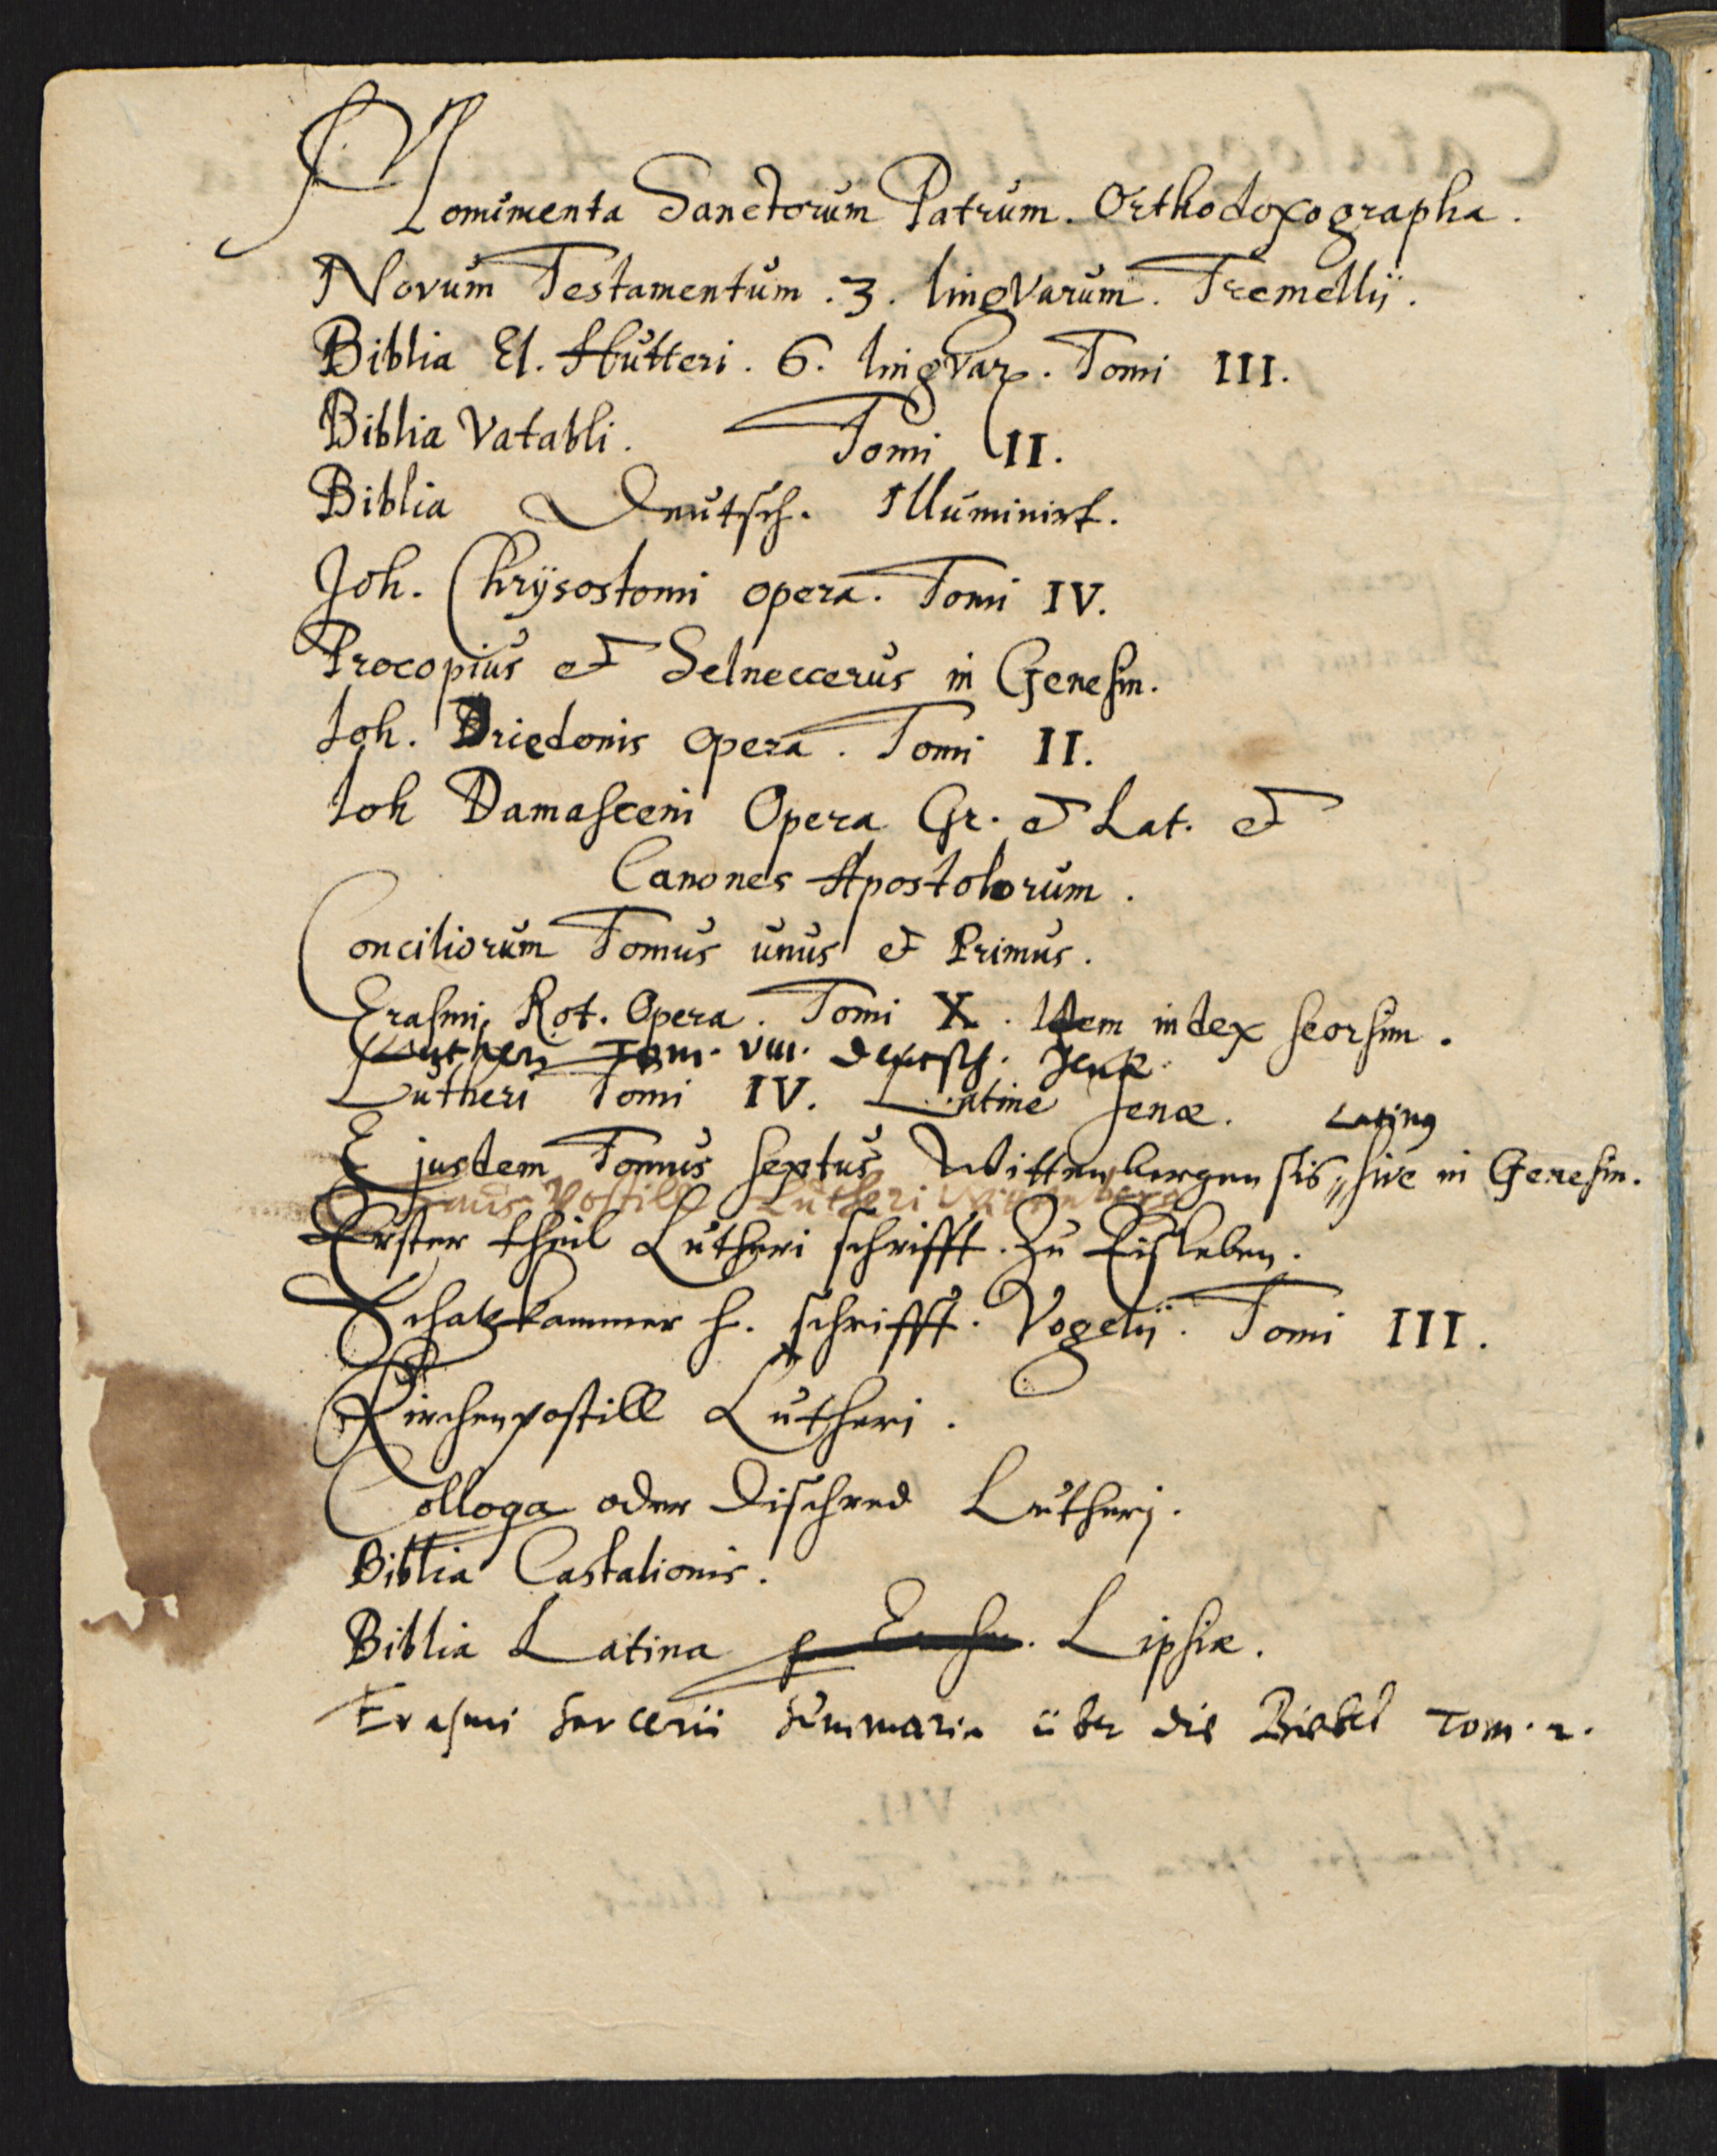 Monimenta Sanctorum Patrum. Orthodoxographa.
Novum Testamentum. 3. lingvarum. Tremellij.
Biblia El. Hutteri. 6. lingvarꝝ. Tomi III.
Biblia Vatabli. Tomi II.
Biblia Deutsch. Illuminirt.
Joh. Chrÿsostomi opera. Tomi IV.
Procopius et Selneccerus in Genesin.
Joh. Driedonis opera. Tomi II.
Joh Damasceni Opera Gr. et Lat. et
Canones Apostolorum.
Conciliorum Tomus unus et Primus.
Erasmi Rot. Opera. Tomi X. Item index seorsim.
Lutheri Tom. VIII. deutsch. Jenæ
Lutheri Tomi IV. Latine Jenæ.
Latinꝰ
Ejusdem Tomus sextus Wittenbergensis, sive in Genesin.
Haus Postill Lutheri Wittenberg
Erster theil Lutheri schrifft. Zu Eisleben.
Schatzkammer h. schrifft. Vogelij. Tomi III.
Kirchenpostill Lutheri.
Colloqa oder Dischred Lutherj.
Biblia Castalionis.
Biblia Latina Lipsiæ.
Erasmi Sarcerii Summaria über die Biebel Tom. 2.